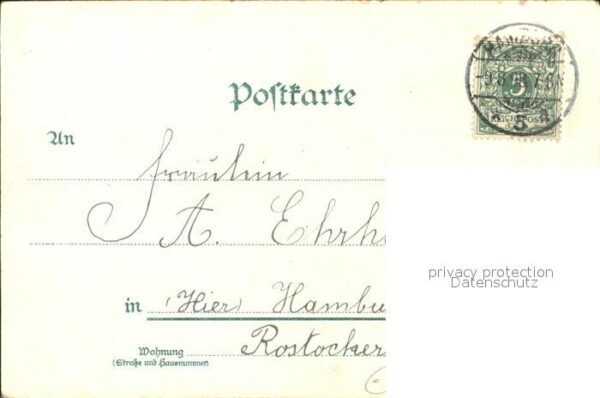 Postkarte
5
REICHSPOST
5
An
Fräulein
A. Ehrh
privacy protection
Datenschutz
in (Hier) Hambu
Rostocker
Wohnung
(Straße und Hausnummer)